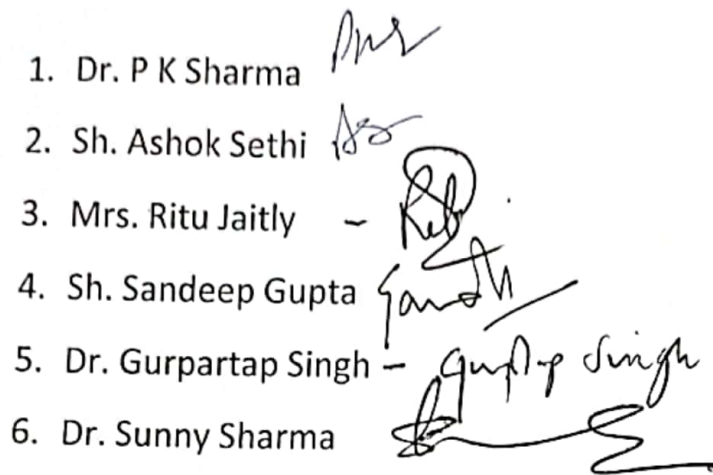 1. Dr. P K Sharma
2. Sh. Ashok Sethi
3. Mrs. Ritu Jaitly –
4. Sh. Sandeep Gupta
5. Dr. Gurpartap Singh – Singh
6. Dr. Sunny Sharma